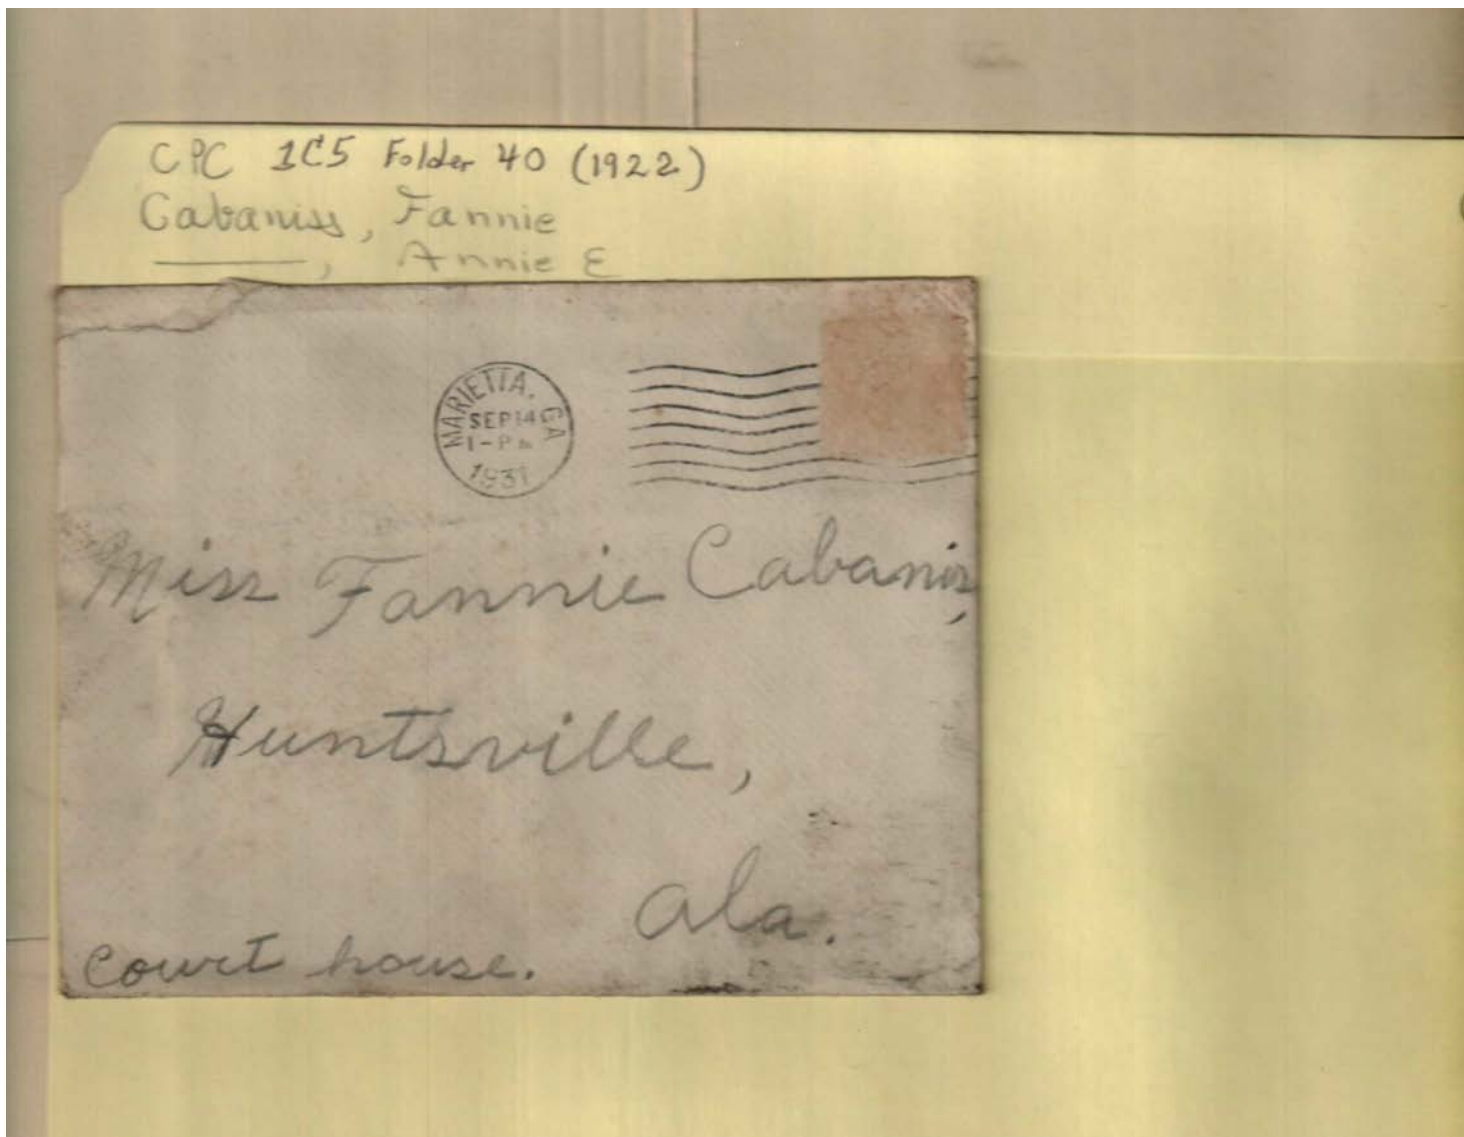 CPC 1C5 Folder 40 (1922)
Cabaniss, Fannie
———, Annie E
MARIETTA, GA
SEP 14
1-PM
1931
Miss Fannie Cabaniss,
Huntsville,
Ala.
Court house.